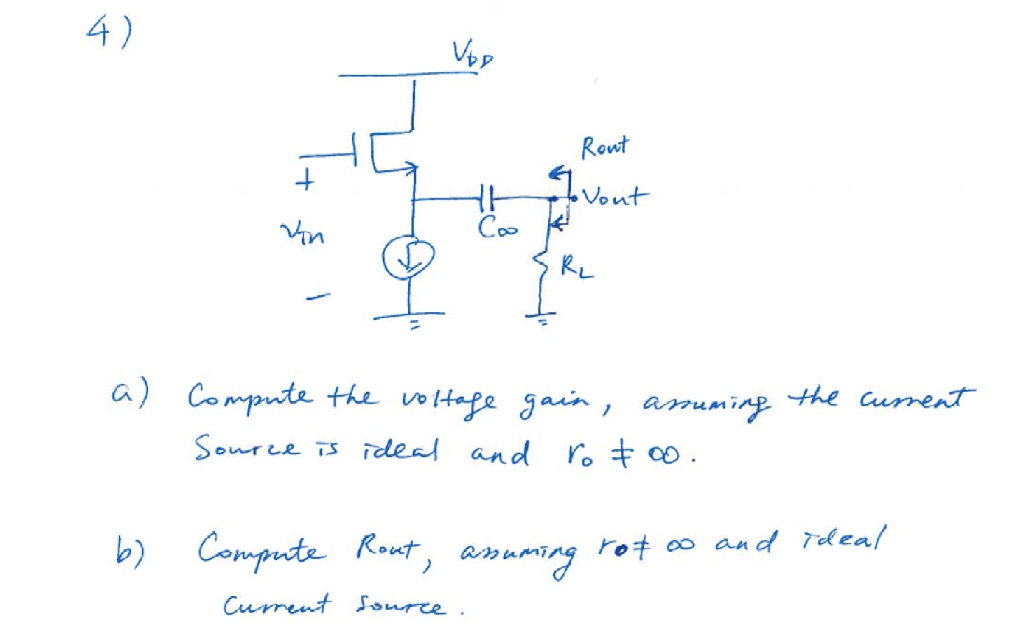 4)
VDD
Rout
+
Vout
Vin
C∞
RL
-
a) Compute the voltage gain, assuming the current
Source is ideal and ro ≠ ∞.
b) Compute Rout, assuming ro ≠ ∞ and ideal
Current Source.